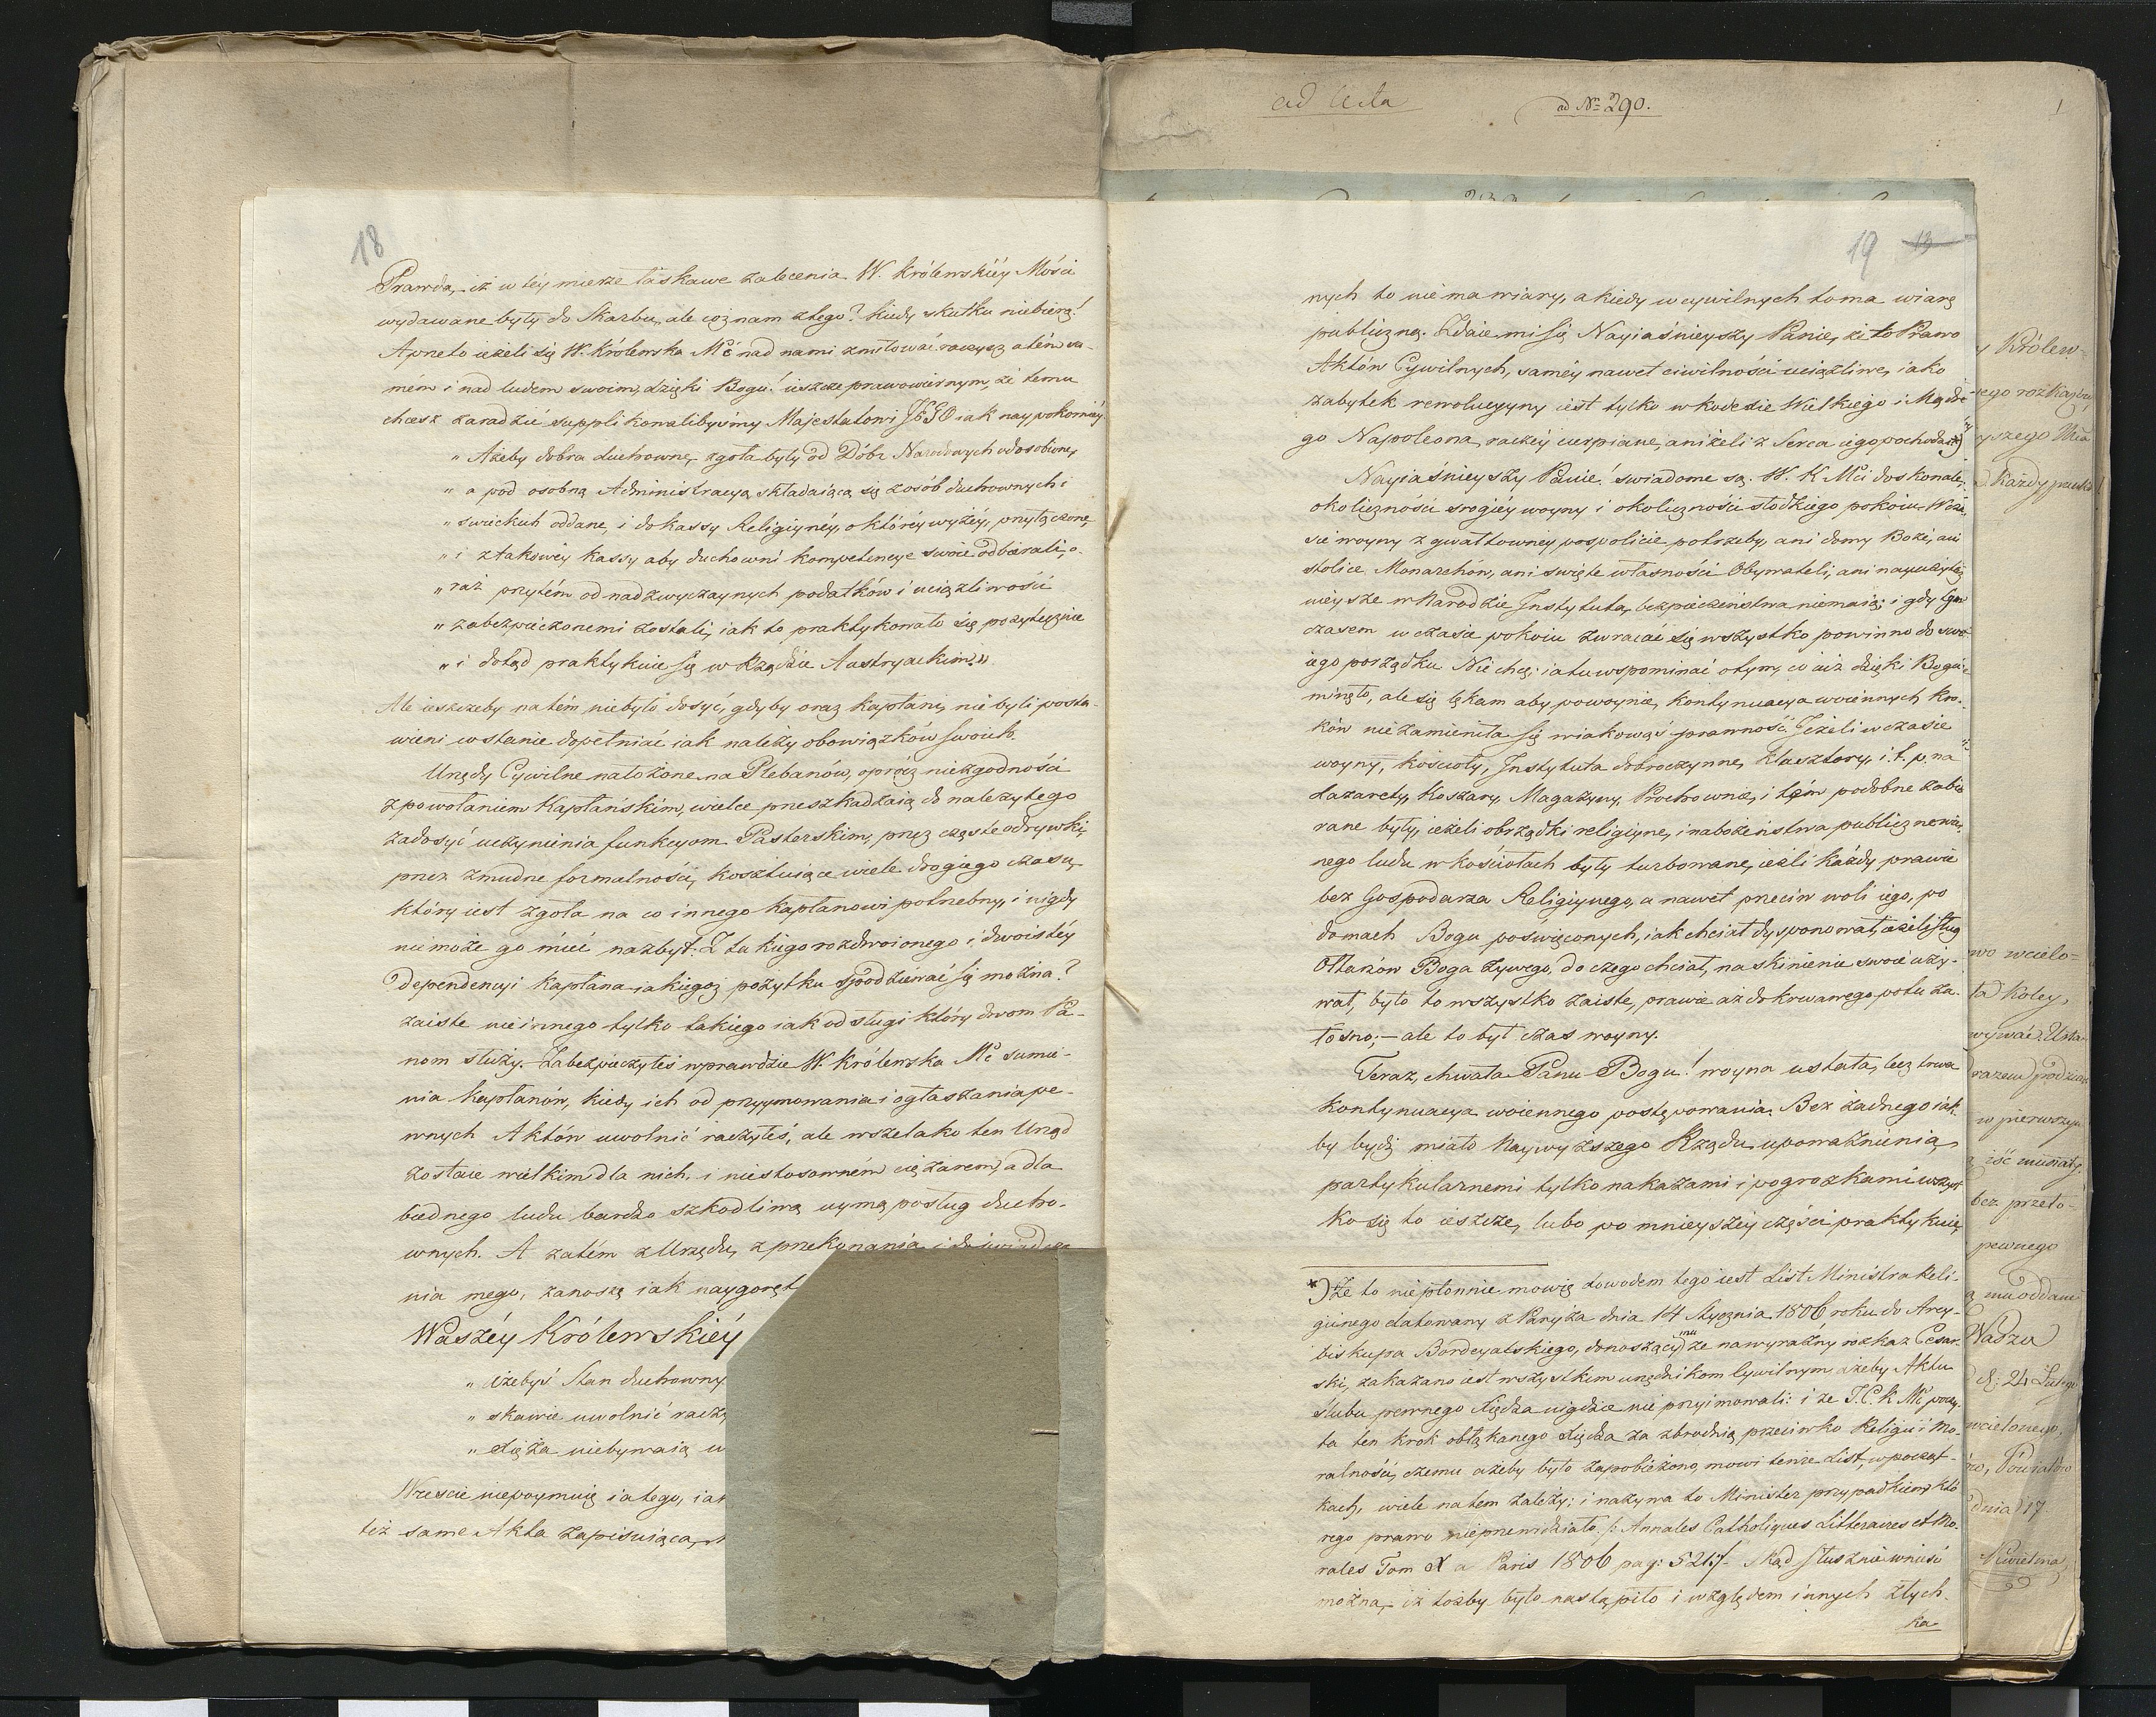 18
Prawda, iż w téy mierze łaskawe zalecenia W. Królewskiéy Mości
wydawane były do Skarbu, ale cóż nam z tego? kiedy skutku niebiorą!
A przeto ieżeli się W. Królewska Mć nad nami zmiłować raczysz a tém sa-
mém i nad ludem swoim, dzięki Bogu! ieszcze prawowiernym, że temu
chcesz zaradzić supplikowalibyśmy Majestatowi JEGO iak naypokorniéy
„ Ażeby dobra duchowne, zgoła były od Dóbr Narodowych udosobione,
„ a pod osobną Administracyą składaiącą się z osób duchownych i
„ świeckich oddane, i do kassy Religiynéy, o któréy wyżéy, przyłączone,
„ i z takowéy kassy aby duchowni kompetencye swoie odbierali, o-
„ raz przytém od nadzwyczaynych podatków i uciążliwości
„ zabezpieczonemi zostali, iak to praktykowało się pożytecznie
„ i dotąd praktykuie się w Rządzie Austryackim.„
Ale ieszczeby na tém niebyło dosyć, gdyby oraz kapłani, nie byli posta-
wieni w stanie dopełniać iak należy obowiązków swoich.
Urzędy Cywilne nałożone na Plebanów, oprócz niezgodności
z powołaniem Kapłańskim, wielce przeszkadzaią do należytego
zadosyć uczynienia funkcyom Pasterskim, przez częste odrywki,
przez żmudne formalności, kosztuiące wiele drogiego czasu,
który iest zgoła na co innego kapłanowi potrzebny, i nigdy
nie może go mieć nazbyt. Z takiego rozdwoionego i dwoistéy
dependencyi Kapłana iakiegoż pożytku spodziewać się można?
zaiste nie innego tylko takiego iak od sługi który dwom Pa-
nom służy. Zabezpieczyłeś wprawdzie W. Królewska Mć sumie-
nia Kapłanów, kiedy ich od przyymowania i ogłaszania pe-
wnych Aktów uwolnić raczyłeś, ale wszelako ten Urząd
zostaie wielkim dla nich, i niestosowném ciężarem, a dla
biednego ludu bardzo szkodliwą uymą posług ducho-
wnych. A zatém z Urzędu, z przekonania i doświadcze
nia mego, zanoszę iak naygoręt
Waszéy Królewskiéy
„ ażebyś Stan duchowny
„ skawie uwolnić raczy
„ Xięża niebywaią u
Wreście niepoymuię ia tego, iak
też same Akta zapisuiąca,
ad Acta
ad No 290.
1
19 18
nych to nie ma wiary, a kiedy w cywilnych to ma wiarę
publiczną. Zdaie mi się Nayiaśnieyszy Panie, że to Prawo
Aktów Cywilnych, saméy nawet ciwilności uciążliwe, iako
zabytek rewolucyyny iest tylko w kodexie Wielkiego i Mądre
go Napoleona, raczéy cierpiane, aniżeli z Serca iego pochodzące *)
Nayiaśnieyszy Panie! świadome są W. K Mci doskonale,
okoliczności srogiéy woyny i okoliczności słodkiego pokoiu. W cza,
sie woyny z gwałtowney pospolicie potrzeby, ani domy Boże, ani
stolice Monarchów, ani święte własności Obywateli, ani nayużytecz
nieysze w Narodzie Instytuta, bezpieczeństwa niemaią; i gdy tym
czasem w czasie pokoiu zwracać się wszystko powinno do swo-
iego porządku. Nie chcę ia tu wspominać o tym, co iuż dzięki Bogu
minęło, ale się lękam aby po woynie, kontynuacya woiennych kro-
ków nie zamieniła się w iakowąś prawność. Jeżeli w czasie
woyny, kościoły, Instytuta dobroczynne, klasztory, i.t.p. na
Lazarety, Koszary, Magazyny, Prochownie, i tém podobne zabie
rane były, ieżeli obrządki religiyne, i nabożeństwa publiczne wier
nego ludu w kościołach były turbowane, ieżli każdy prawie
bez Gospodarza Religiynego, a nawet przeciw woli iego, po
domach Bogu poświęconych, iak chciał dysponował, ieżeli sług
Ołtarzów Boga żywego, do czego chciał, na skinienie swoie uży-
wał, było to wszystko zaiste, prawie aż do krwawego potu ża-
łosno; — ale to był czas woyny.
Teraz, chwała Panu Bogu! woyna ustała, lecz trwa
kontynuacya woiennego postępowania. Bez żadnego iak
by bydź miało Naywyższego Rządu upoważnienia,
partykularnemi tylko nakazami i pogrozkami wszyst
ko się to ieszcze, lubo po mnieyszéy części praktykuie,
*) Że to niepłonnie mowię dowodem tego iest List Ministra Reli-
giinego datowany z Paryża dnia 14 Stycznia 1806 roku do Arcy-
biskupa Bordeyalskiego, donoszący mu że na wyraźny rozkaz Cesar-
ski, zakazano iest wszystkim urzędnikom Cywilnym, ażeby Aktu
ślubu pewnego Xiędza nigdzie nie przyimowali: i że J.C.K Mć poczy
ta ten krok obłąkanego Xiędza za zbrodnię przeciwko Religii i Mo-
ralności, czemu ażeby było zapobieżono, mowi tenże List, w począt-
kach, wiele na tem zależy; i nazywa to Minister przypadkiem, któ
rego prawo nieprzewidziało. /: Annales Catholiques Litteraires et Mo-
rales Tom X a Paris 1806 pag: 521:/- Skąd słusznie wnieść
można, iż tożby było nastąpiło i względem innych złych
ka-
y Królew=
iego rozkazu,
yszego Mia
Każdy
wo wcielo=
ta Koley,
wywać
razem
w pierwszym
iść musiały.
bez przeło=
pewnego
mu oddane
Wadza
d: 24 Lutego
wcielonego,
Powiatów
dnia 17
Kwietnia